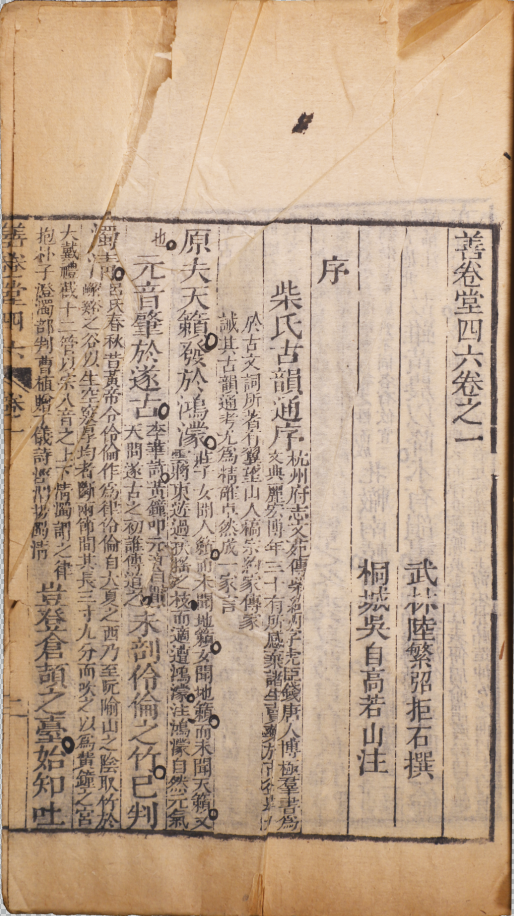 善卷堂四六卷之一
武林陸繁弨拒石撰
桐城吳自高若山注
序
柴氏古韻通序
杭州府志文苑傳柴紹炳字虎臣錢唐人博極羣書為
文典麗宏博年三十有所感棄諸生
於古文詞所著有翼望山人稿宗約家傳家
誡其古韻通考尤為精確卓然成一家言
原夫天籟發於鴻濛
莊子女聞人籟而未聞地籟女聞地籟而未聞天籟又
雲將東遊過扶搖之枝而適遭鴻濛注鴻濛自然元氣
也
元音肇於遂古
李華詩黃鐘叩元音
天問遂古之初誰傳道之
未剖伶倫之竹已判
濁清
呂氏春秋昔黃帝令伶倫作為律伶倫自大夏之西乃至阮隃山之陰取竹於
嶰谿之谷以生空竅厚均者斷兩節間其長三寸九分而吹之以為黃鐘之宮
大戴禮截十二管以宗八音之上下清濁謂之律
抱朴子澄濁剖判曹植贈丁儀詩
豈登倉頡之臺始知吐
善卷堂四六
卷一